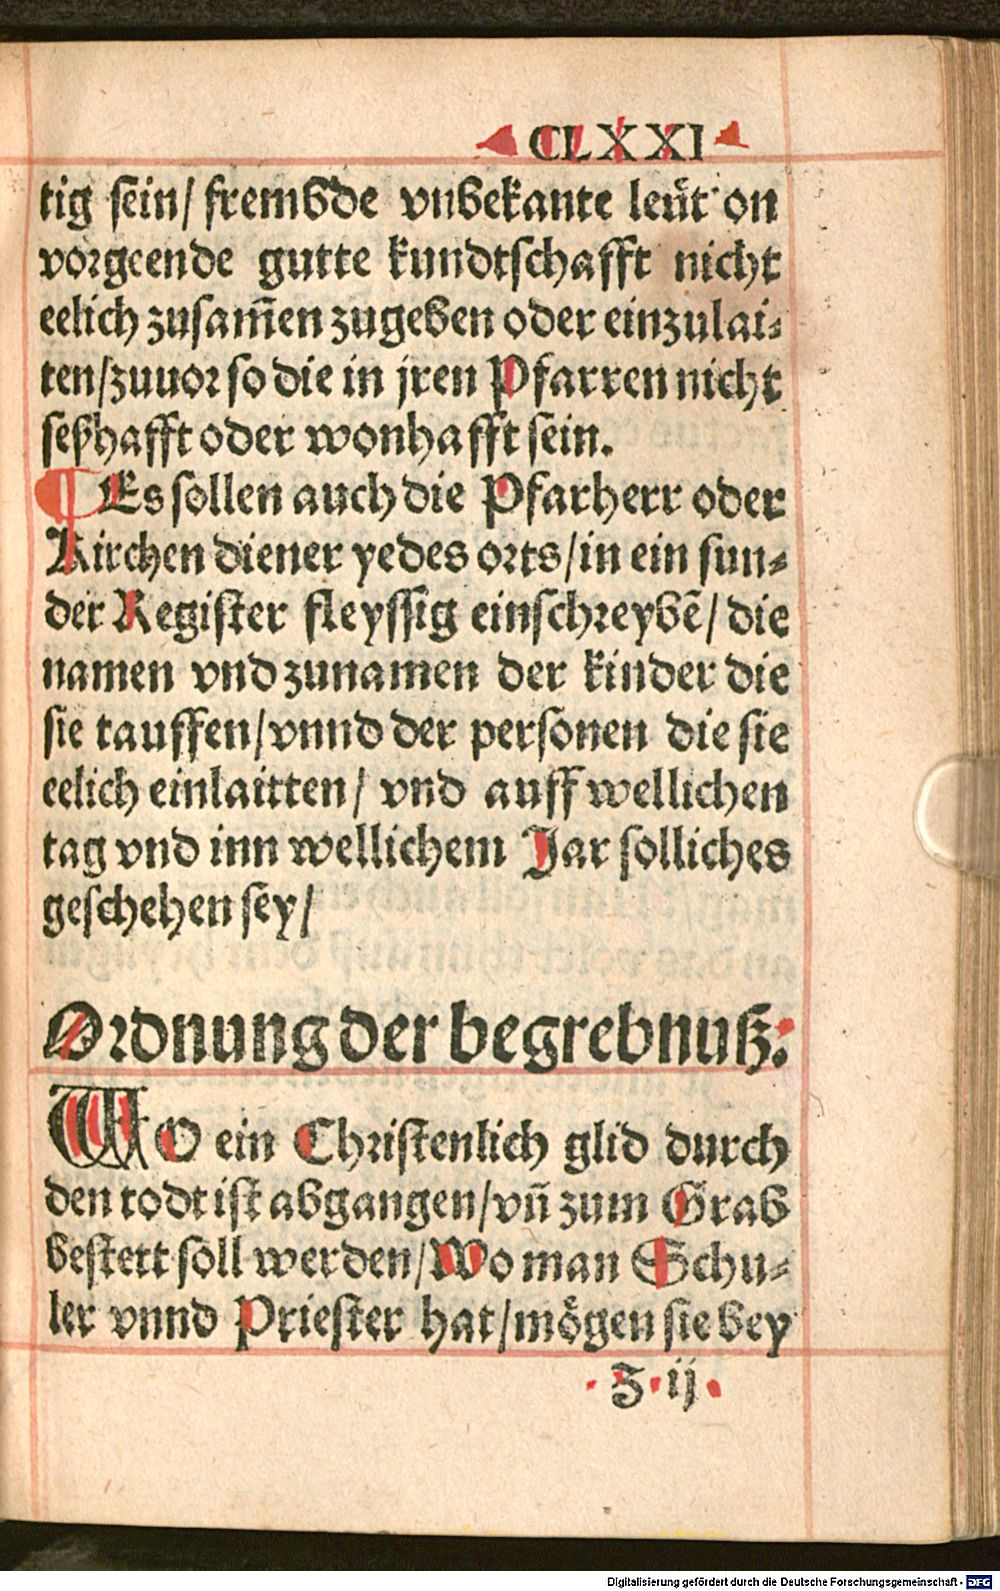 CLXXI
tig sein/ frembde vnbekante leüt on
vorgeende gutte kundtschafft nicht
eelich zusam̃en zugeben oder einzulai⸗
ten/zuuor so die in jren Pfarren nicht
seßhafft oder wonhafft sein.
¶ Es sollen auch die Pfarherr oder
Kirchen diener yedes orts/in ein sun⸗
der Register fleyssig einschreybẽ/ die
namen vnd zunamen der kinder die
sie tauffen/vnnd der personen die sie
eelich einlaitten/ vnd auff wellichen
tag vnd inn wellichem Jar solliches
geschehen sey/
Ordnung der begrebnuß:
WO ein Christenlich glid durch
den todt ist abgangen/vñ zum Grab
bestett soll werden/Wo man Schu⸗
ler vnnd Priester hat/mögen sie bey
Z ij
Digitalisierung gefördert durch die Deutsche Forschungsgemeinschaft - DFG